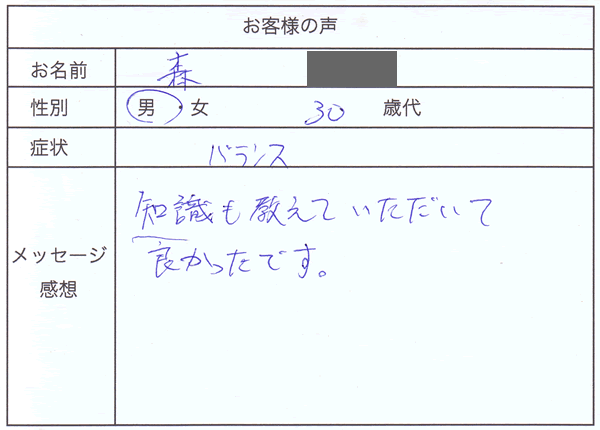 お客様の声
お名前 森
性別 男・女 30 歳代
症状 バランス
メッセージ
感想
知識も教えていただいて
良かったです。